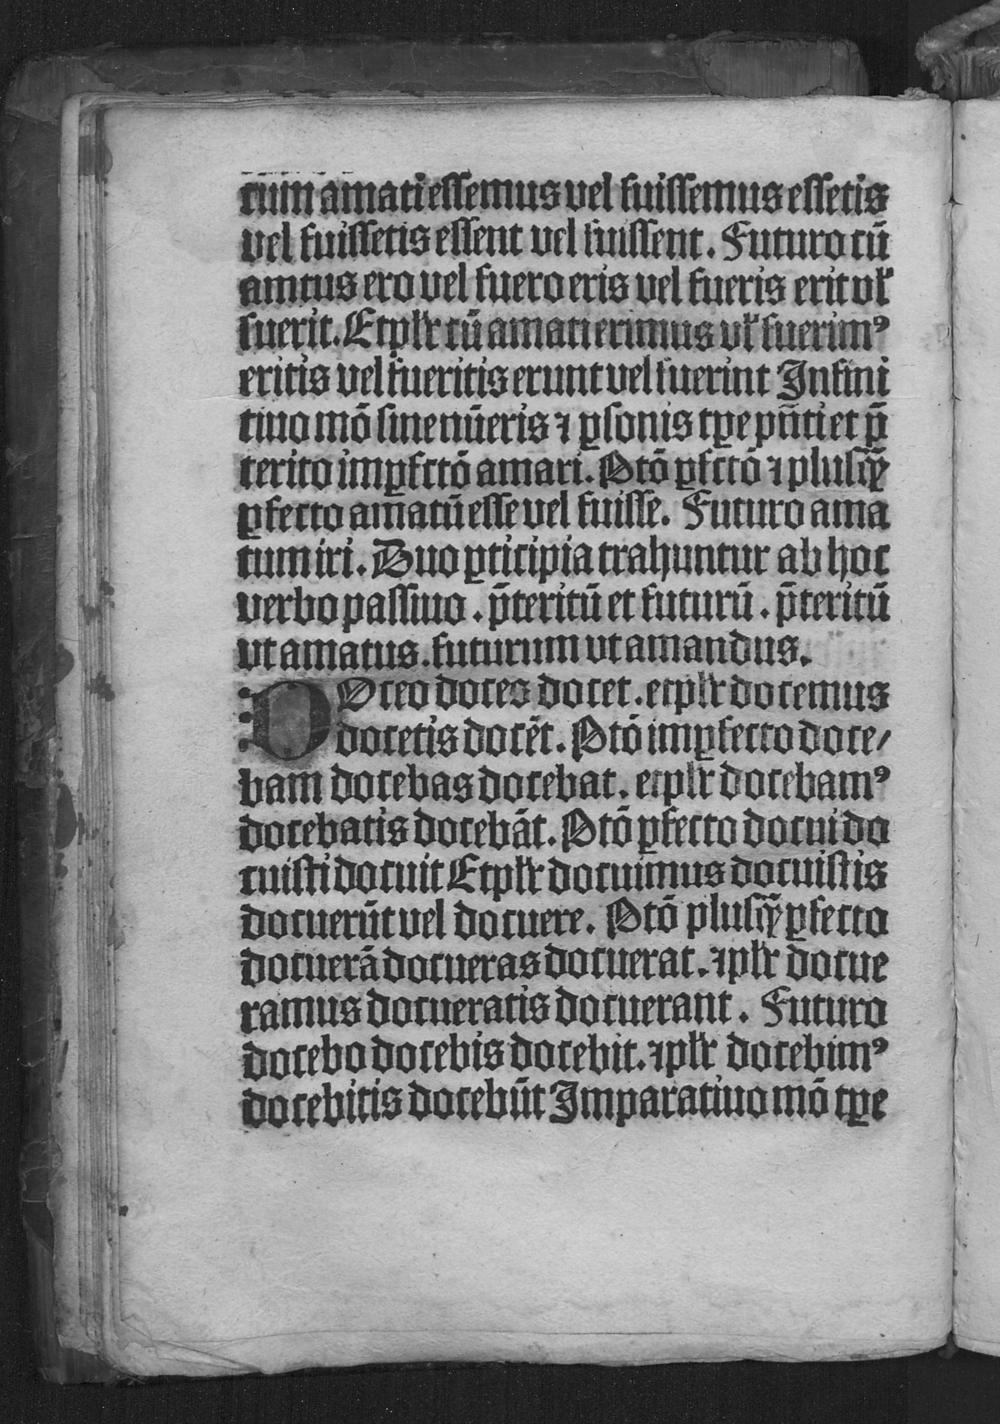 cum amati essemus vel fuissemus essetis
vel fuissetis essent vel fuissent. Futuro cū
amtus ero vel fuero eris vel fueris erit vꝉ
fuerit. Etplr̄ cū amati erimus vꝉ fuerimꝰ
eritis vel fueritis erunt vel fuerint Infini
tiuo mō sine nūeris ⁊ ꝑsonis tꝑe pn̄ti et p̄
terito imꝑfctō amari. Ptō ꝑfctō ⁊ plusꝙ̄
ꝑfecto amatū esse vel fuisse. Futuro ama
tum iri. Duo ꝑticipia trahuntur ab hoc
verbo passiuo. p̄teritū et futurū. p̄teritū
vt amatus. futurum vt amandus.
DOceo doces docet. etplr̄ docemus
docetis docēt. Ptō imꝑfecto doce/
bam docebas docebat. etplr̄ docebamꝰ
docebatis docebāt. Ptō ꝑfecto docui do
cuisti docuit Etplr̄ docuimus docuistis
docuerūt vel docuere. Ptō plusꝙ̄ ꝑfecto
docuerā docueras docuerat. ⁊plr̄ docue
ramus docueratis docuerant. Futuro
docebo docebis docebit. ⁊plr̄ docebimꝰ
docebitis docebūt Imparatiuo mō tꝑe